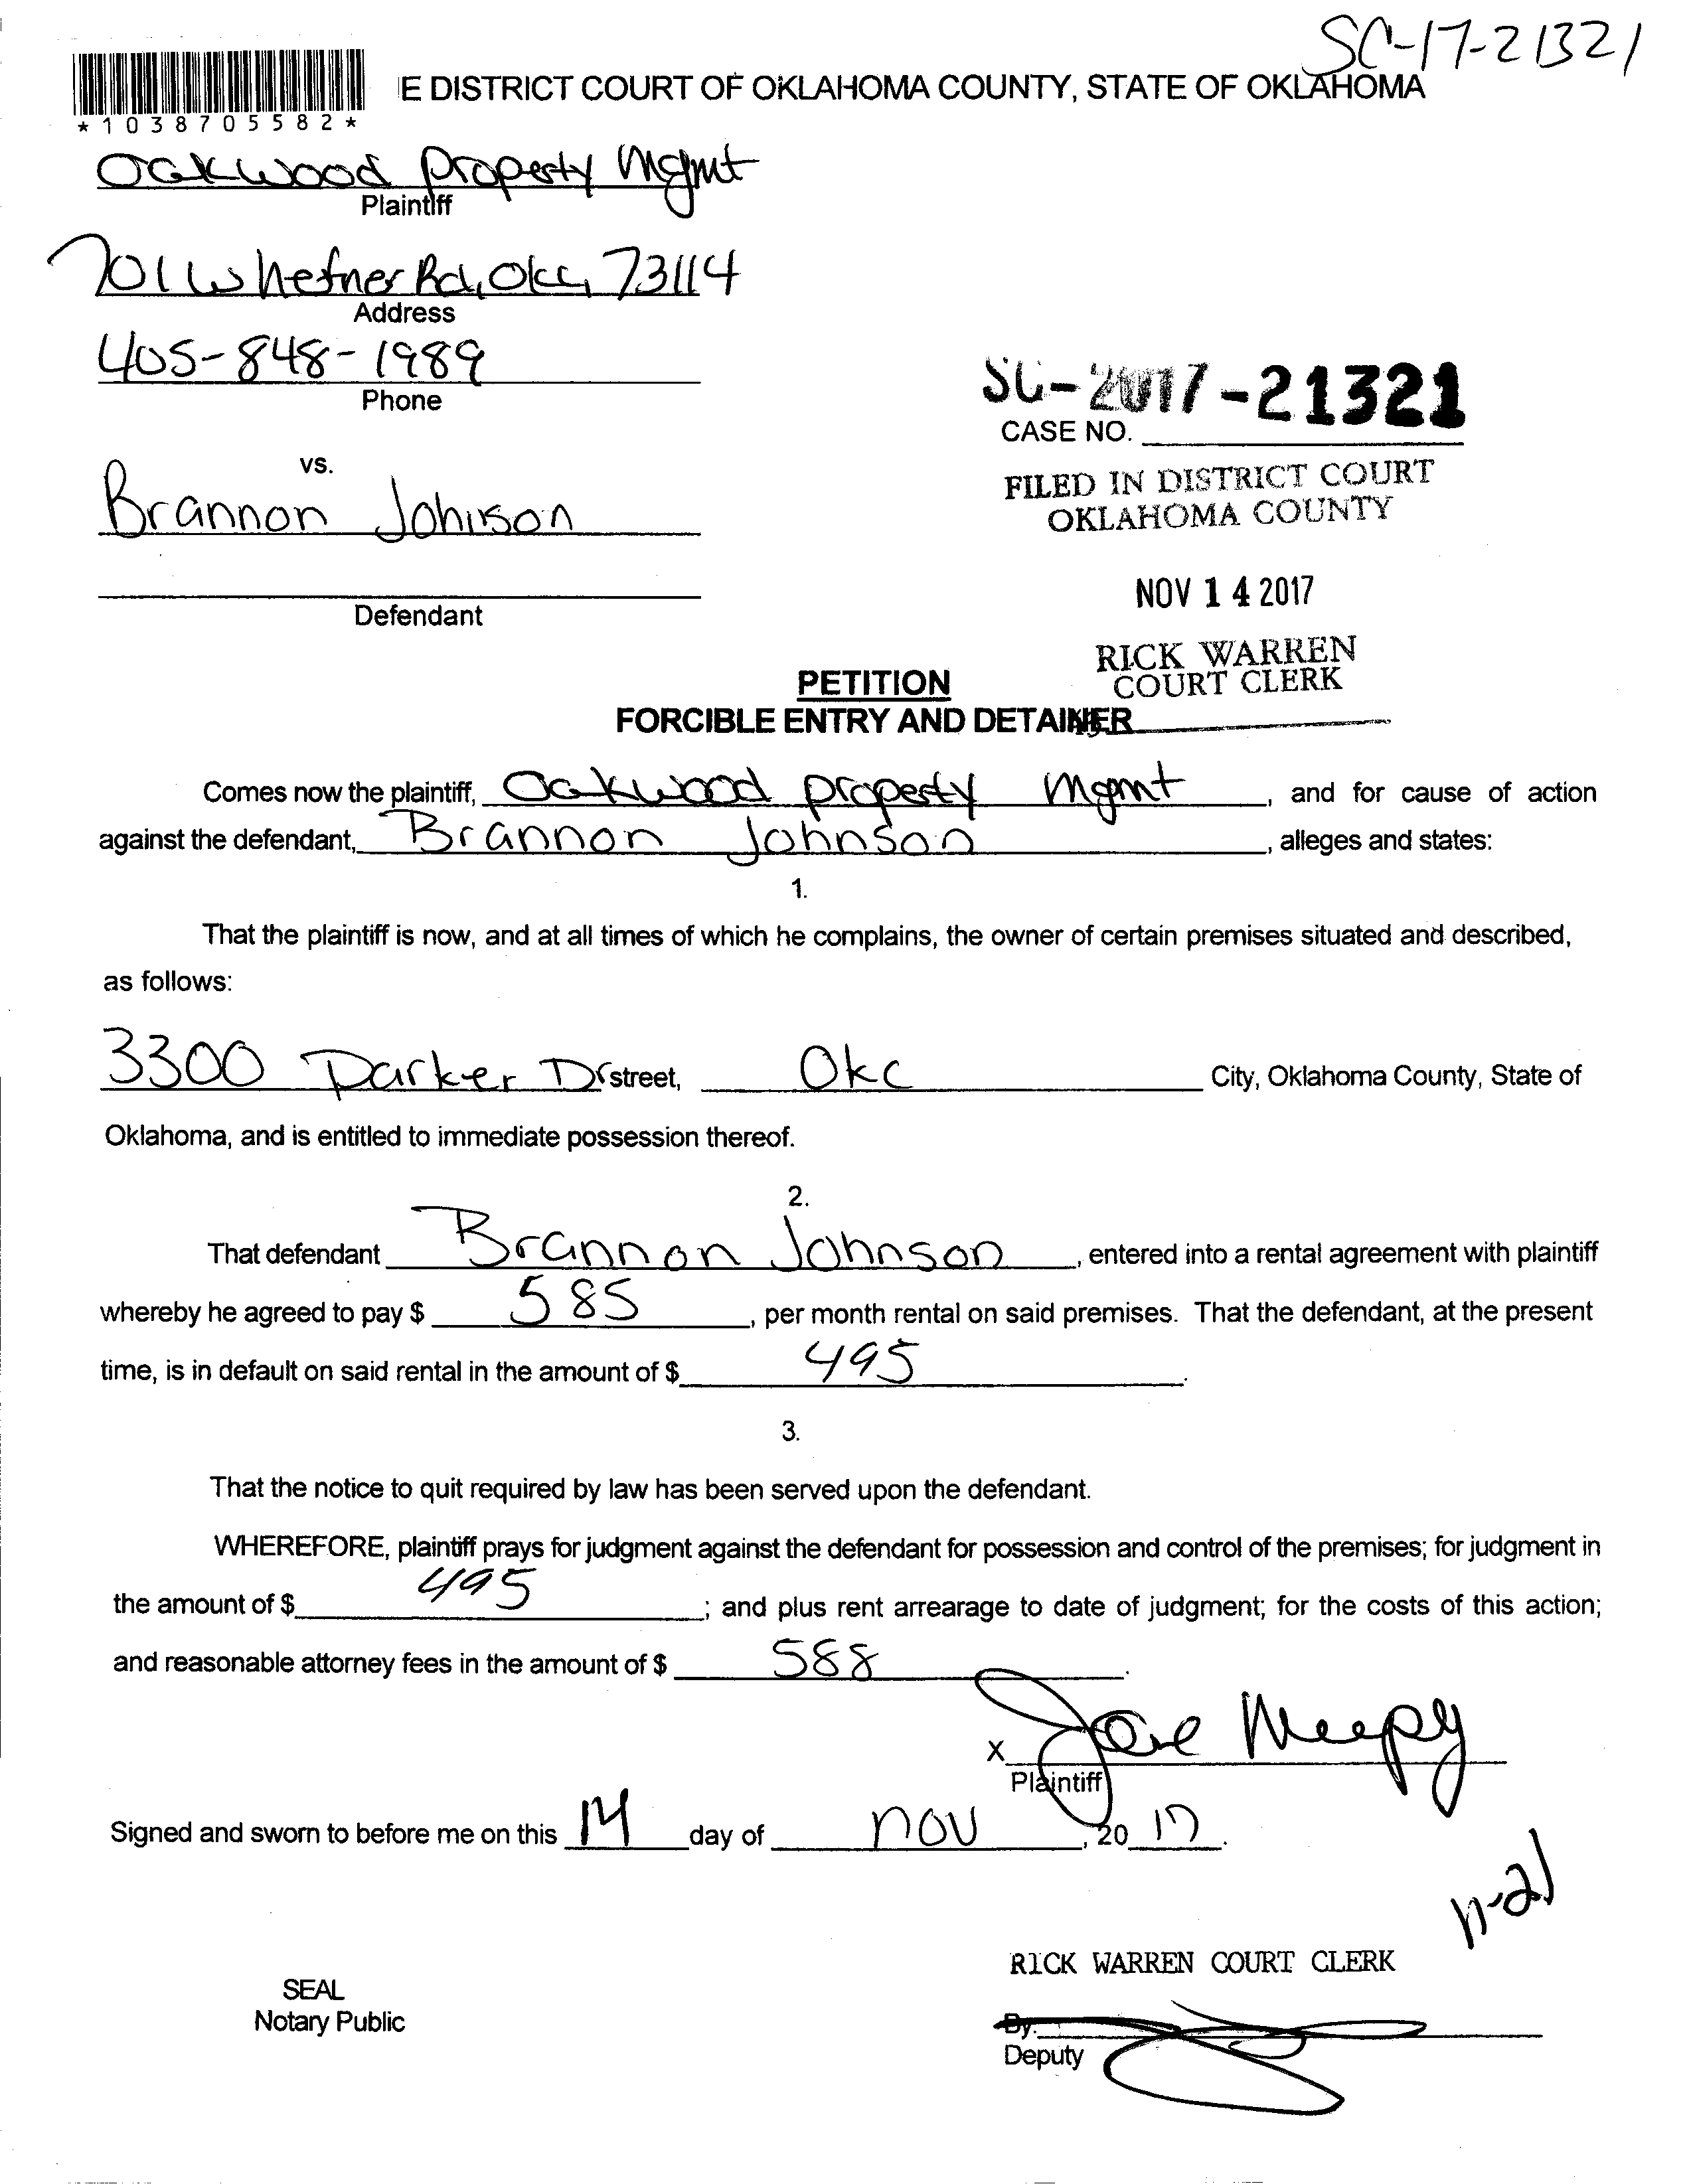 SC-17-21321
E DISTRICT COURT OF OKLAHOMA COUNTY, STATE OF OKLAHOMA
*1038705582*
Oakwood Property Mgmt
Plaintiff
701 W Hefner Rd, Okc, 73114
Address
405-848-1989
Phone
SC-2017-21321
CASE NO.
vs.
Brannon Johnson
FILED IN DISTRICT COURT
OKLAHOMA COUNTY
NOV 14 2017
Defendant
RICK WARREN
COURT CLERK
PETITION
FORCIBLE ENTRY AND DETAINER
Comes now the plaintiff, Oakwood property Mgmt, and for cause of action
against the defendant, Brannon Johnson, alleges and states:
1.
That the plaintiff is now, and at all times of which he complains, the owner of certain premises situated and described,
as follows:
3300 Parker Dr street, Okc City, Oklahoma County, State of
Oklahoma, and is entitled to immediate possession thereof.
2.
That defendant Brannon Johnson, entered into a rental agreement with plaintiff
whereby he agreed to pay $ 585, per month rental on said premises. That the defendant, at the present
time, is in default on said rental in the amount of $ 495.
3.
That the notice to quit required by law has been served upon the defendant.
WHEREFORE, plaintiff prays for judgment against the defendant for possession and control of the premises; for judgment in
the amount of $ 495; and plus rent arrearage to date of judgment; for the costs of this action;
and reasonable attorney fees in the amount of $ 588.
X
Plaintiff
Signed and sworn to before me on this 14 day of nov, 20 17.
11-21
RICK WARREN COURT CLERK
SEAL
Notary Public
By:
Deputy